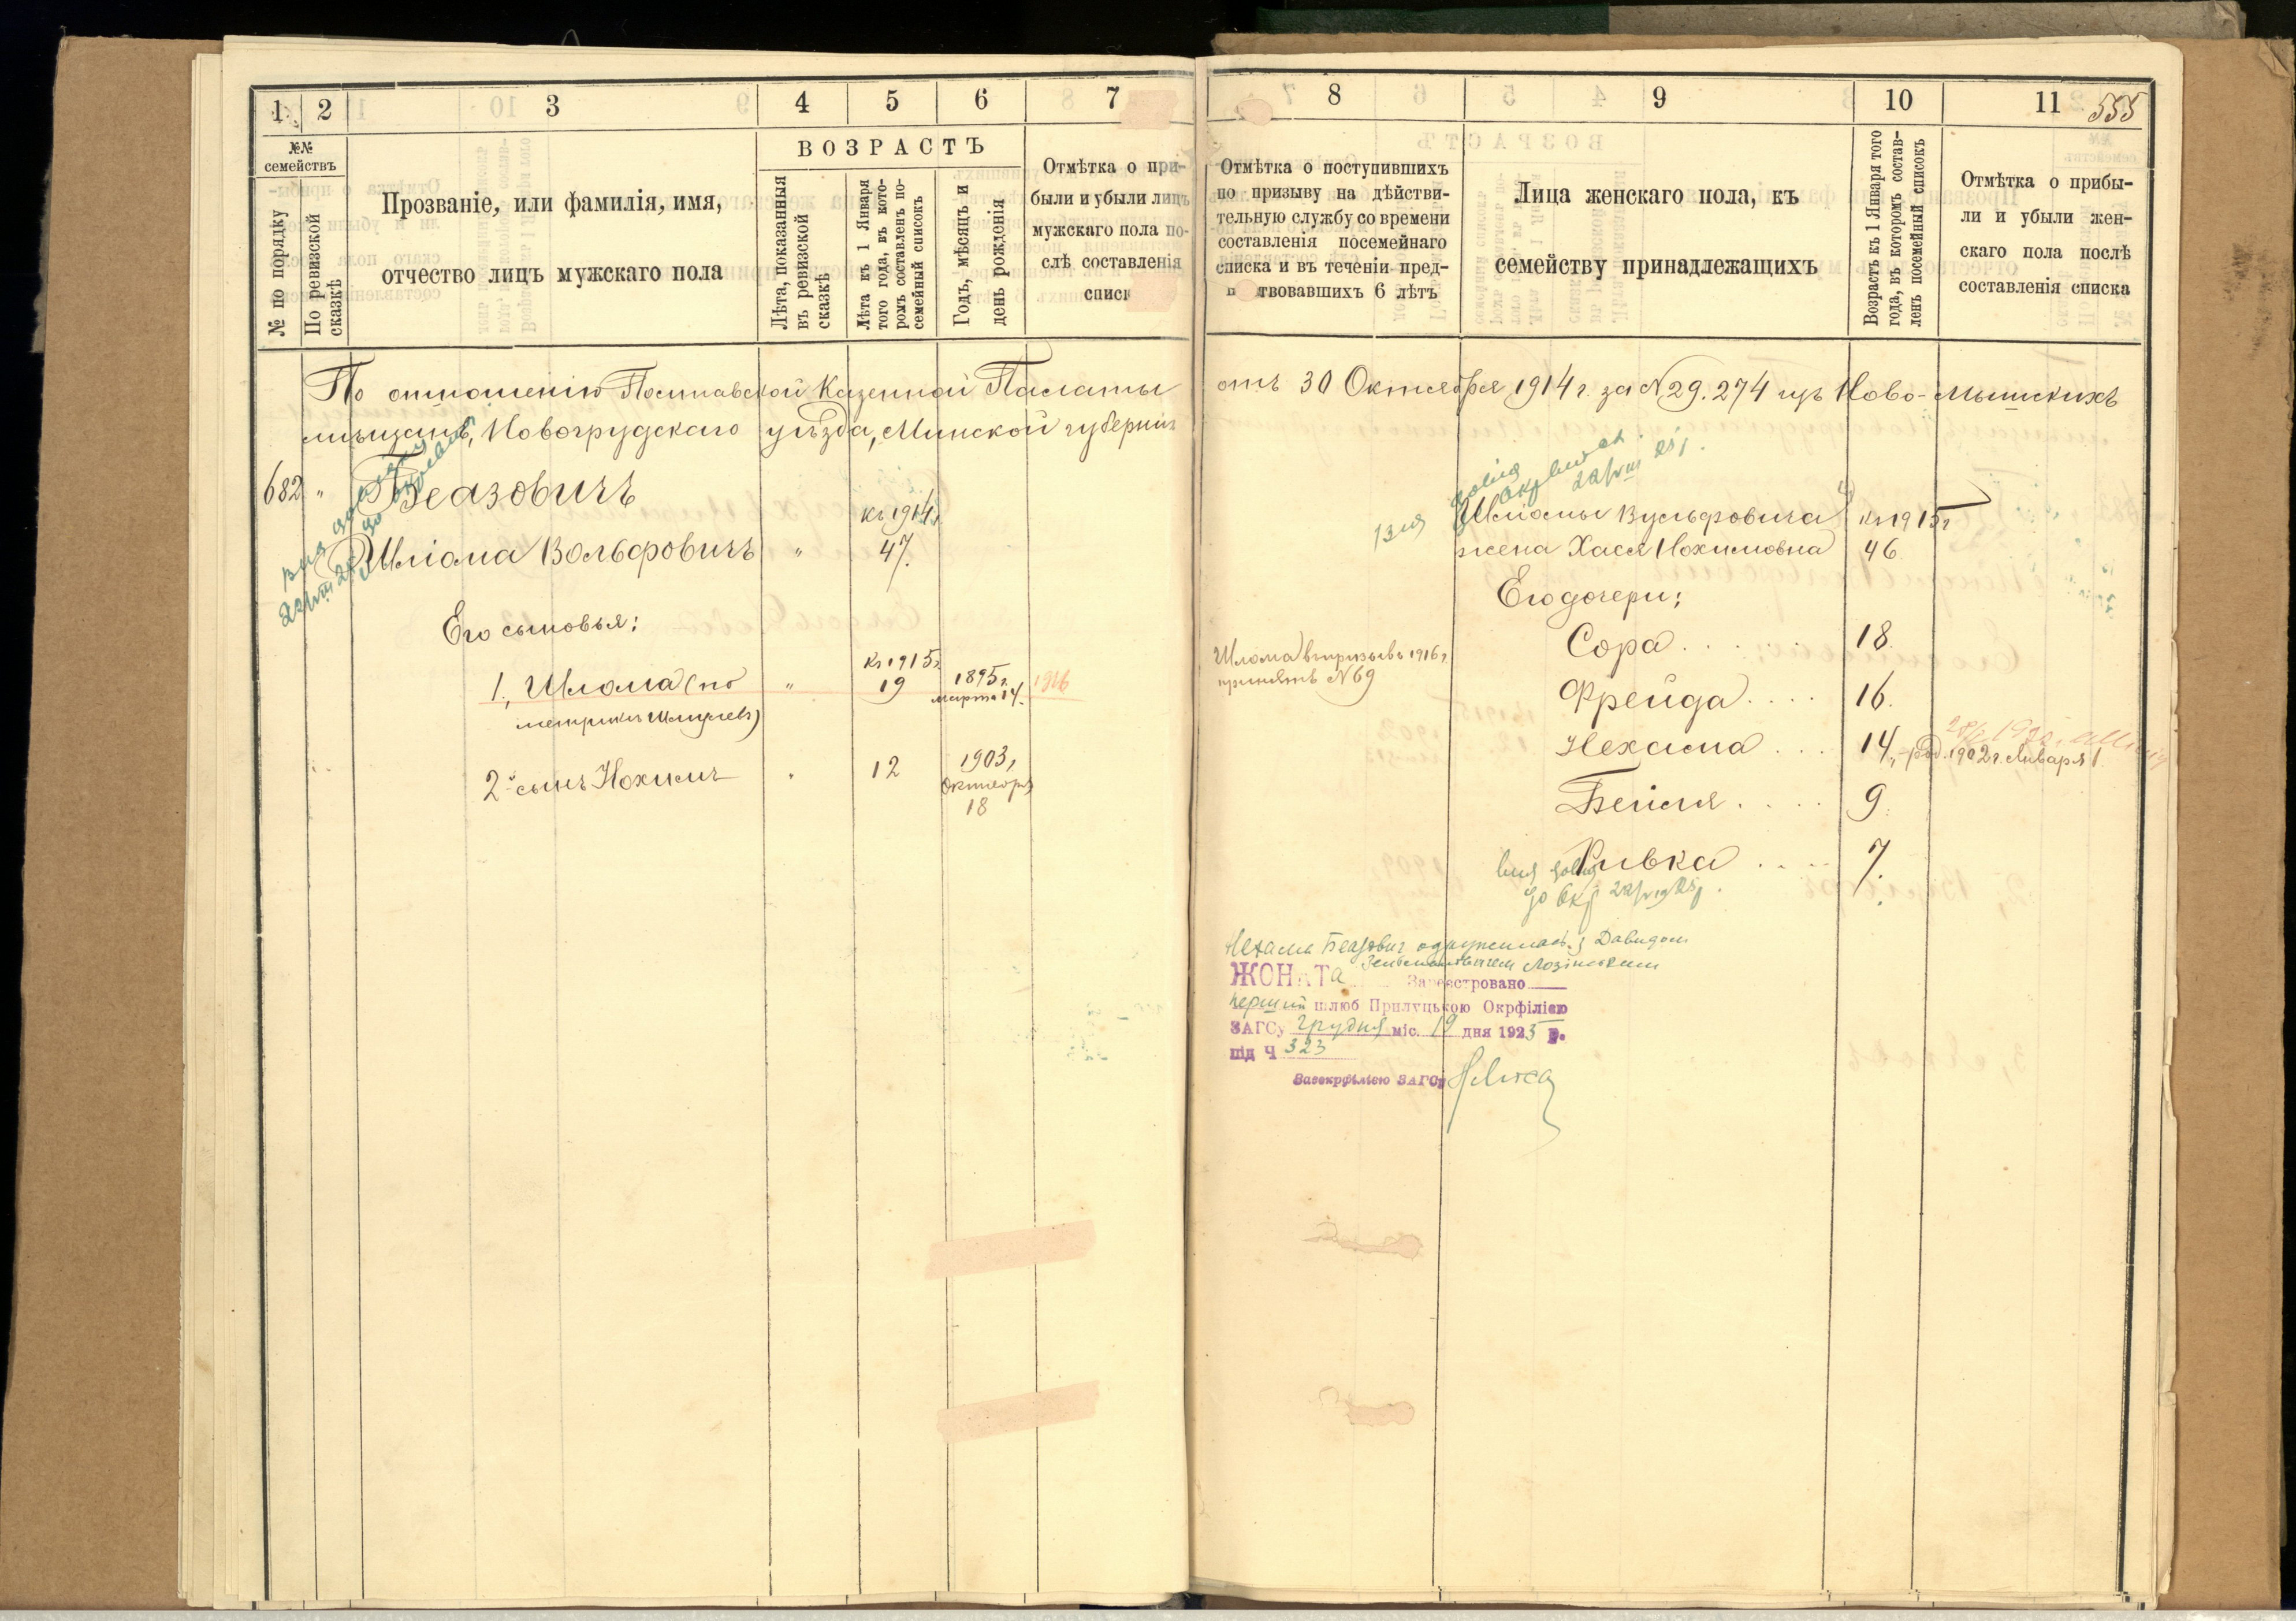 1 2 3 4 5 6 7
№№ семействъ
№ по порядку
По ревизской сказкѣ
Прозваніе, или фамилія, имя,
отчество лицъ мужскаго пола
ВОЗРАСТЪ
Лѣта, показанныя
въ ревизской
сказкѣ
Лѣта къ 1 Января
того года, въ кото-
ромъ составленъ по-
семейный списокъ
Годъ, мѣсяцъ и
день рожденія
Отмѣтка о при-
были и убыли лицъ
мужскаго пола по-
слѣ составленія
списк
По отношенію Полтавской Казенной Палаты
мѣщанъ, Новогрудскаго уѣзда, Минской губерніи
682 " Беазовичъ
къ 1914г.
Шліома Вольфовичъ " 47.
Его сыновья:
къ 1915г.
1, Шлома (по " 19 1895 г. марта 14. 1916
метрикѣ Шмулевъ)
2й сынъ Нохимъ " 12 1903, Октября 18
8 9 10 11 555
Отмѣтка о поступившихъ
по призыву на дѣйстви-
тельную службу со времени
составленія посемейнаго
списка и въ теченіи пред-
твовавшихъ 6 лѣтъ
Лица женскаго пола, къ
семейству принадлежащихъ
Возрастъ къ 1 Января того
года, въ которомъ состав-
ленъ посемейный списокъ
Отмѣтка о прибы-
ли и убыли жен-
скаго пола послѣ
составленія списка
отъ 30 Октября 1914 г. за N 29.274 изъ Ново-Мышскихъ
Шліомы Вульфовича къ 1915г
жена Хася Нохимовна 46.
Его дочери:
Сора 18.
Шлома въ призывъ 1916 г.
принятъ N 69
Фрейда 16.
Нехама 14, род. 1902 г. Января 1.
Бейля 9.
Ривка 7.
Нехама Беазович одружилась з Давидом
Лозінським
ЖОНАТа Зареєстровано
перший шлюб Прилуцькою Окрфілією
ЗАГСу грудня міс. 19 дня 1925 р.
під Ч 323
Завокрфілією ЗАГСу